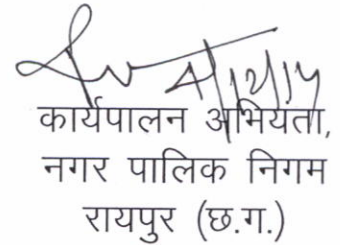 कार्यपालन अभियंता,
नगर पालिक निगम
रायपुर (छ.ग.)